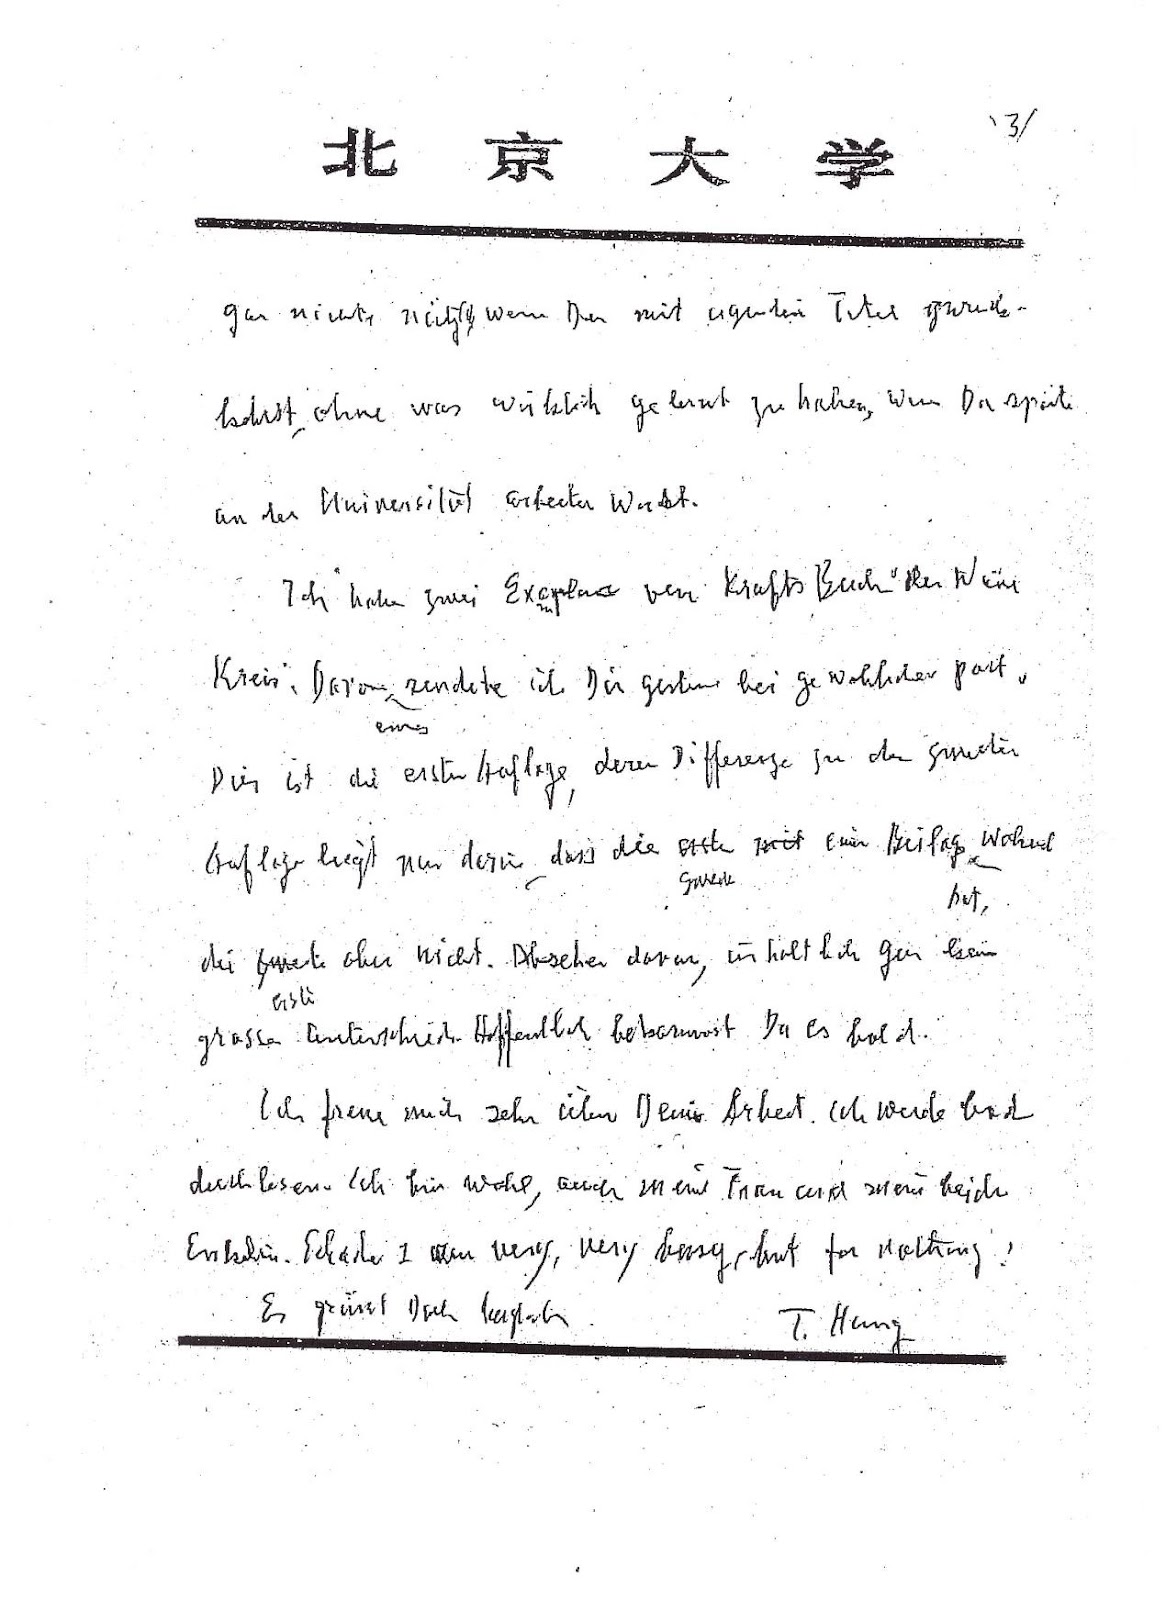 北京大学
3/
gar nichts nützt, wenn Du mit irgendein Titel zurück-
kehrst, ohne was wirklich gelernt zu haben, wenn Du später
an der Universität arbeiten wirst.
Ich habe zwei Exemplare von Krafts Buch "Der Wiener
Kreis". Davon sendete ich Dir gestern bei gewöhnlicher Post.
eines
Dies ist die erste Auflage, deren Differenz zu der zweiten
Auflage liegt nur darin, dass die erste mit ein Beilage
zweite
hat,
die zweite aber nicht. Abgesehen davon, inhaltlich gar kein
erste
grosser Unterschied. Hoffentlich bekommst Du es bald.
Ich freue mich sehr über Deine Arbeit. Ich werde bald
durchlesen. Ich bin wohl, auch meine Frau und meine beide
Enkelin. Schade I am very, very busy, but for nothing!
Es grüsst Dich herzlich
T. Hong